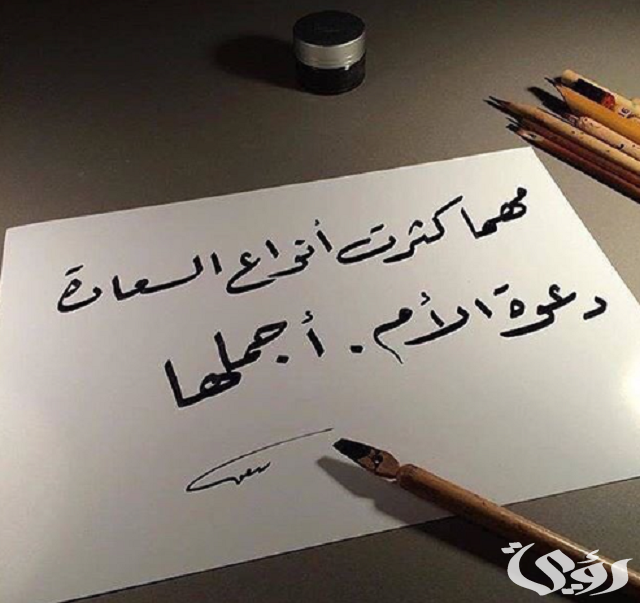 مهما كثرت أنواع السعادة
دعوة الأم . أجملها
رؤية